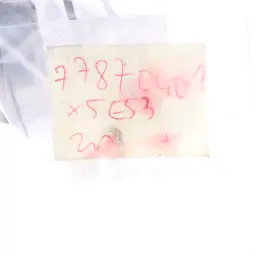 77870401
x5 E53